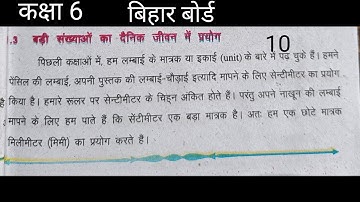 कक्षा 6 बिहार बोर्ड
.3 बड़ी संख्याओं का दैनिक जीवन में प्रयोग
10
पिछली कक्षाओं में, हम लम्बाई के मात्रक या इकाई (unit) के बारे में पढ़ चुके हैं। हमने
पेंसिल की लम्बाई, अपनी पुस्तक की लम्बाई-चौड़ाई इत्यादि मापने के लिए सेन्टीमीटर का प्रयोग
किया है। हमारे रूलर पर सेन्टीमीटर के चिह्न अंकित होते हैं। परंतु अपने नाखून की लम्बाई
मापने के लिए हम पाते हैं कि सेंटीमीटर एक बड़ा मात्रक है। अतः हम एक छोटे मात्रक
मिलीमीटर (मिमी) का प्रयोग करते हैं।